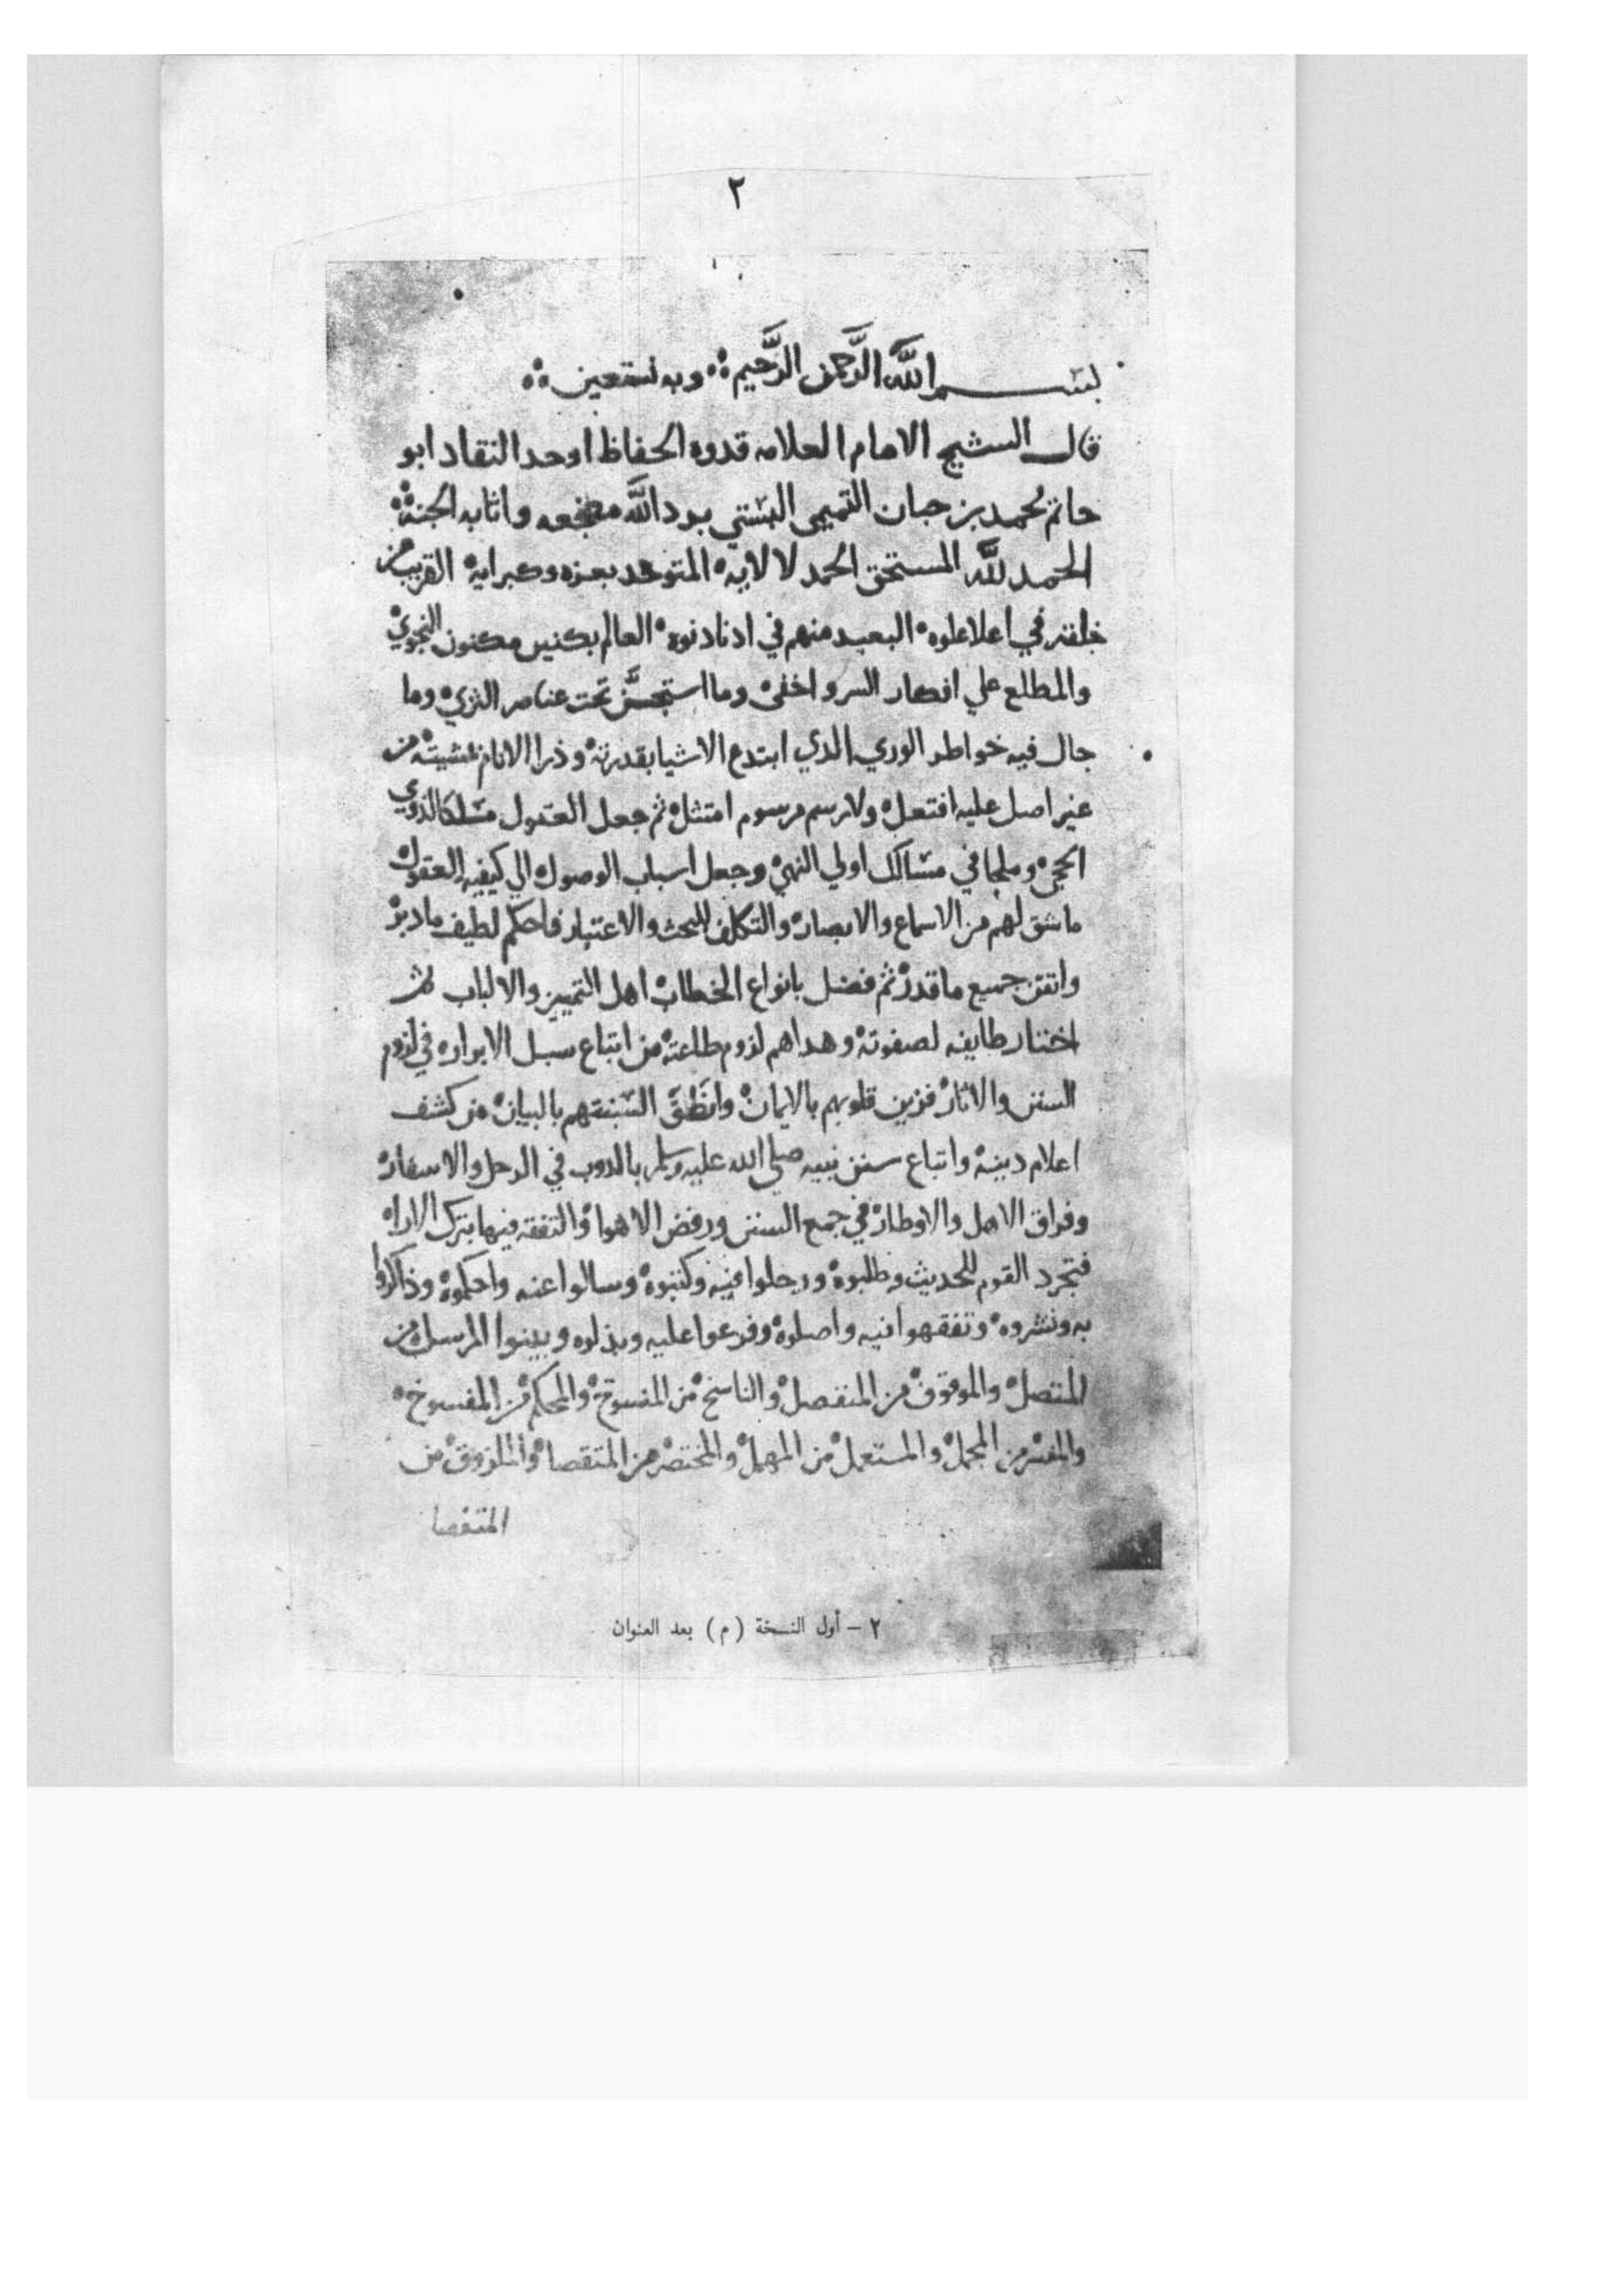 ٢
بسم الله الرَّحمن الرَّحيم وبه نستعين
قال الشيخ الامام العلامه قدوه الحفاظ اوحد النقاد ابو
حاتم محمد بن حبان التميمي البستي برد الله مضجعه واثابه الجنة
الحمد لله المستحق الحمد لالايه المتوحد بعزه وكبرايه القريب من
خلقه في اعلا علوه البعيد منهم في ادنا دنوه العالم بكنين مكنون النجوي
والمطلع علي افكار السر واخفى وما استجن تحت عناصر الثري وما
جال فيه خواطر الوري الذي ابتدع الاشيا بقدرته وذرا الانام بمشيته من
غير اصل عليه افتعل ولا رسم مرسوم امتثل ثم جعل العقول مسلكا لذوي
الحجى وملجا في مسالك اولي النهى وجعل اسباب الوصول الي كيفيه العقول
ما شق لهم من الاسماع والابصار والتكلف للبحث والاعتبار فاحكم لطيف ما دبر
واتقن جميع ما قدر ثم فضل بانواع الخطاب اهل التمييز والالباب ثم
اختار طايفه لصفوته وهداهم لزوم طاعته من اتباع سبل الابرار في لزوم
السنن والاثار فزين قلوبهم بالايمان وانطَقَ السنتهم بالبيان من كشف
اعلام دينه واتباع سنن نبيه صلي الله عليه وسلم بالدوب في الرحل والاسفار
وفراق الاهل والاوطار في جمع السنن ورفض الاهوا والتفقه فيها بترك الارا
فتجرد القوم للحديث وطلبوه ورحلوا فيه وكتبوه وسالوا عنه واحكموه وذاكروا
به ونشروه وتفقهوا فيه واصلوه وفرعوا عليه وبذلوه وبينوا المرسل من
المتصل والموقوف من المنفصل والناسخ من المنسوخ والمحكم من المفسوخ
والمفسر من المجمل والمستعمل من المهمل والمختصر من المتقصا والملزوق من
المتفصا
٢ – أول النسخة (م) بعد العنوان